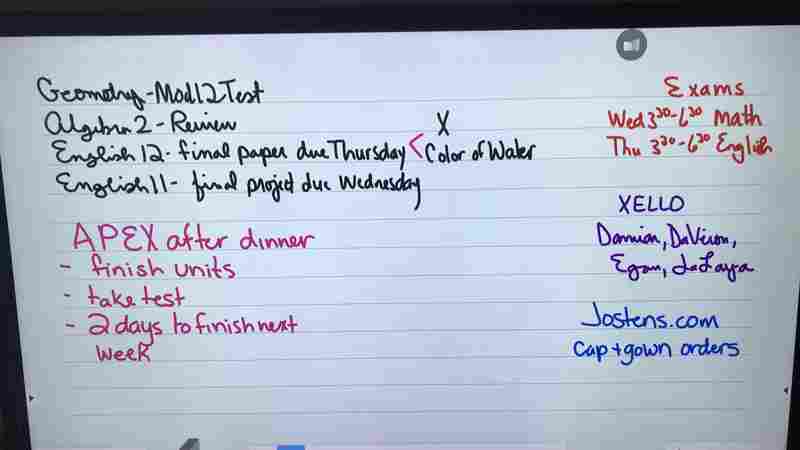 Geometry - Mod 12 Test
Algebra 2 - Review
English 12 - final paper due Thursday < X
Color of Water
English 11 - final project due Wednesday
APEX after dinner
- finish units
- take test
- 2 days to finish next
week
Exams
Wed 3³⁰-6³⁰ Math
Thu 3³⁰-6³⁰ English
XELLO
Damian, DaViron,
Egan, JaLaya
Jostens.com
Cap + gown orders